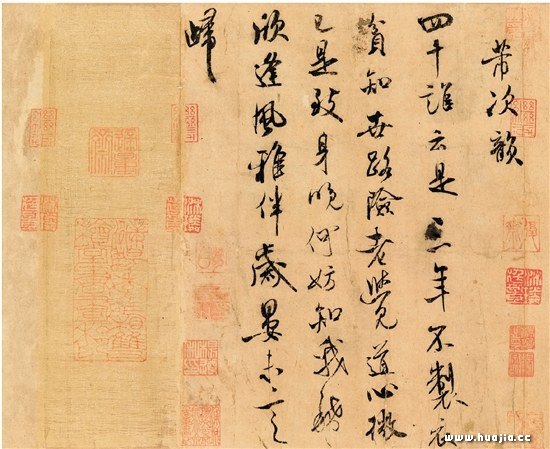 芾次韻
四十誰云是三年不製衣
貧知世路險老覺道心微
已是致身晚何妨知我稀
欣逢風雅伴歲晏未言
歸
www.huajia.cc